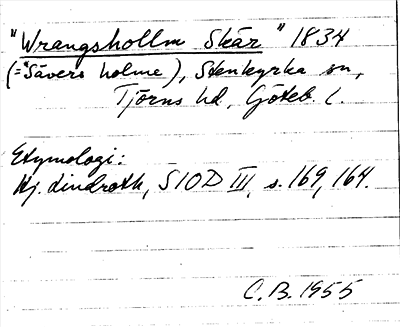 "Wrangshollm Skär" 1834
(="Sävers holme"), Stenkyrka sn,
Tjörns hd, Göteb. l.
Etymologi:
Hj. Lindroth, SIOD III, s. 169, 164.
C.B. 1955